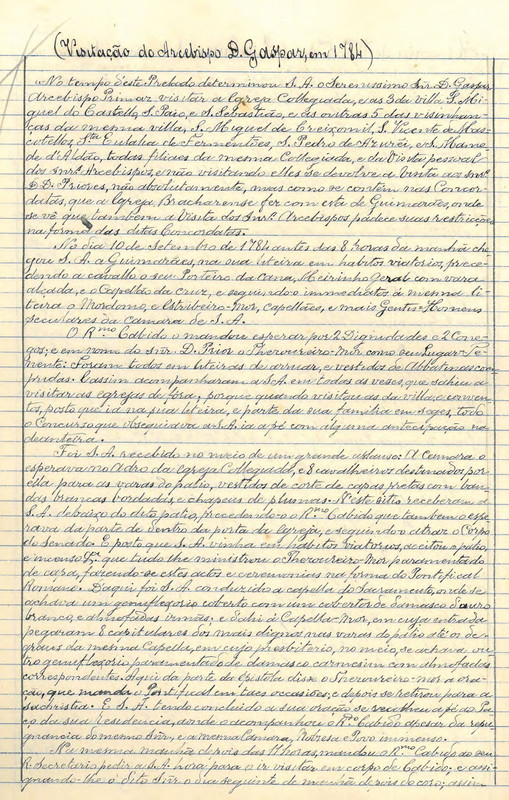 (Visitação do Arcebispo D. Gaspar, em 1784)
«No tempo d'este Prelado determinou S. A. o Serenissimo Snr. D. Gaspar
Arcebispo Primaz visitar a Egreja Collegiada, e as 3 da villa S. Mi-
guel do Castello, S. Paio, e S. Sebastião, e as outras 5 das visinhan-
ças da mesma villa, S. Miguel de Creixomil, S. Vicente de Mas-
cotellos, Sta Eulalia de Fermentões, S. Pedro de Azurei, e S. Mame-
de d'Aldão, todas filiaes da mesma Collegiada, e da Visita pessoal
dos Snrs. Arcebispos, e não visitando elles se devolve a Visita aos Snrs.
D. Priores, não absolutamente, mas como se contém nas Concor-
datas, que a Egreja Bracharense fez com esta de Guimarães, onde
se vê que tambem a Visita dos Snrs. Arcebispos padece suas restricções
na forma das ditas Concordatas.
No dia 10 de Setembro de 1784 antes das 8 horas da manhã che-
gou S. A. a Guimarães, na sua liteira em habitos viatorios, prece-
dendo a cavallo o seu Porteiro da Cana, Meirinho Geral com vara
alçada, e o Capellão da Cruz, e seguindo-o immediatos á mesma li-
teira o Mordomo, e Estribeiro-Mor, capellães, e mais Gentis-Homens
seculares da Camara de S. A.
O Rmo Cabido o mandou esperar por 2 Dignidades e 2 Cone-
gos; e em nome do Snr. D. Prior o Thesoureiro-Mor como seu Lugar-Te-
nente: Foram todos em liteiras de arruar, e vestidos de Abbatinas com-
pridas. E assim acompanharam a S. A. em todas as veses, que sahiu a
visitar as egrejas de fora, porque quando visitou as da villa, e conven-
tos, posto que ia na sua liteira, e parte da sua familia em sages, todo
o Concurso que obsequiava a S. A. ia a pé com alguma antecipação na
deanteira.
Foi S. A. recebido no meio de um grande applauso: A Camara o
esperava no Adro da Egreja Collegiada, e 8 cavalheiros destinados por
ella para as varas do palio, vestidos de corte de capas pretas com ban-
das brancas bordadas, e chapeus de plumas. N'este sitio receberam a
S. A. debaixo do dito palio, precedendo-o o Rmo Cabido que tambem o espe-
rava da parte de dentro da porta da Egreja, e seguindo-o atraz o Corpo
do Senado. E posto que S. A. vinha em habitos viatorios, acceitou o palio,
e incenso &ª que tudo lhe ministrou o Thesoureiro-Mor paramentado
de capa, fazendo-se estes actos e ceremonias na forma do Pontifical
Romano. Daqui foi S. A. conduzido á capella do Sacramento, onde se
achava um genuflexorio coberto com um cobertor de damasco d'ouro
branco, e almofadas irmãs, e d'ahi á Capella-Mor, em cuja entrada
pegaram 8 capitulares dos mais dignos nas varas do palio até os de-
graus da mesma Capella, em cujo presbiterio, no meio, se achava ou-
tro genuflexorio paramentado de damasco carmesim com almofadas
correspondentes. Aqui da parte da Epistola disse o Thesoureiro-mor a ora-
ção, que manda o Pontifical em taes occasiões; e depois se retirou para a
sachristia. E S. A. tendo concluido a sua oração se recolheu a pé ao Pa-
ço da sua residencia, donde o acompanhou o Rmo Cabido apesar da repu-
gnancia do mesmo Snr., e a mesma Camara, Nobresa e Povo immenso.
Na mesma manhã depois das 11 horas, mandou o Rmo Cabido ao seu
R. Secretario pedir a S. A. hora para o ir visitar em corpo de Cabido; e assi-
gnando-lhe o dito Snr. o dia seguinte de manhã depois do coro; assim